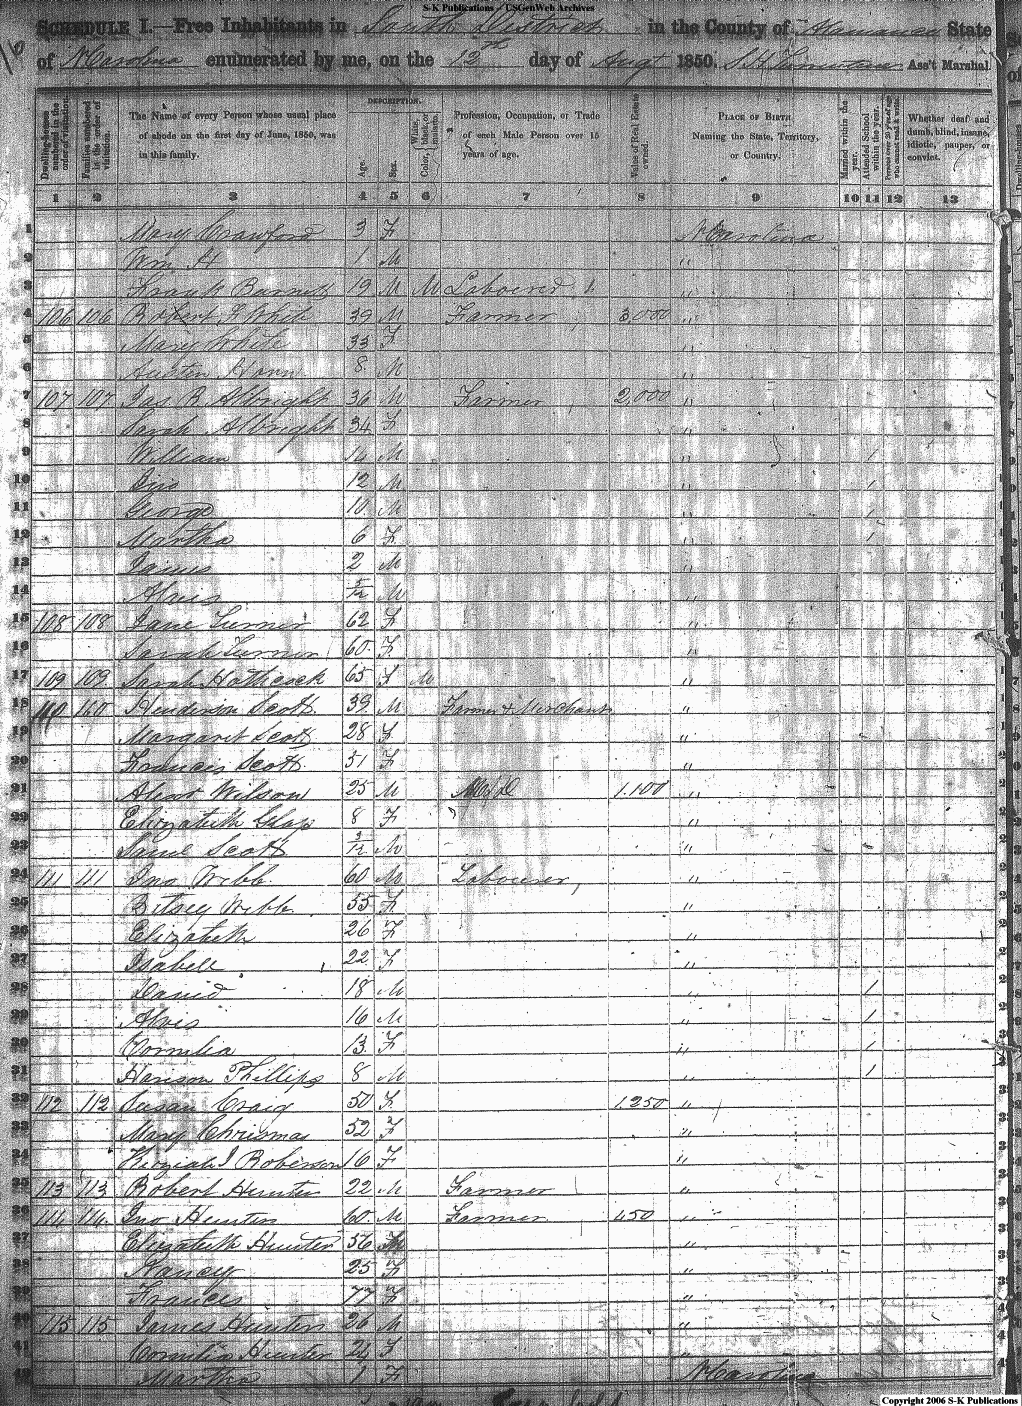 S-K Publications - USGenWeb Archives
SCHEDULE I.—Free Inhabitants in South District in the County of Alamance State
of N Carolina enumerated by me, on the 12th day of Augt 1850. Ass't Marshal.
DESCRIPTION.
Dwelling-houses numbered in the order of visitation.
Families numbered in the order of visitation.
The Name of every Person whose usual place of abode on the first day of June, 1850, was in this family.
Age.
Sex.
White, black, or mulatto. Color,
Profession, Occupation, or Trade of each Male Person over 15 years of age.
Value of Real Estate owned.
PLACE OF BIRTH. Naming the State, Territory, or Country.
Married within the year.
Attended School within the year.
Persons over 20 y'rs of age who cannot read & write.
Whether deaf and dumb, blind, insane, idiotic, pauper, or convict.
1 2 3 4 5 6 7 8 9 10 11 12 13
1 Mary Crawford 3 F N Carolina
2 Wm H 1 M "
3 Frank Barnett 19 M M Labourer 1 "
4 106 106 Robert F White 39 M Farmer 3,000 "
5 Mary White 33 F "
6 Austin 8 M "
7 107 107 Jas B Albright 36 M Farmer 2,000 "
8 Sarah Albright 34 F "
9 William 14 M " 1
10 Jno 12 M " 1
11 George 10 M " 1
12 Martha 6 F " 1
13 James 2 M "
14 Alvis 5/12 M "
15 108 108 Jane Turner 62 F "
16 Sarah Turner 60 F "
17 109 109 Sarah Hathcock 65 F M "
18 110 110 Henderson Scott 39 M Farmer & Merchant "
19 Margaret Scott 28 F "
20 Frances Scott 51 F "
21 Wilson 25 M M D 1.100 "
22 Elizabeth Clap 8 F "
23 Saml Scott 3/12 M "
24 111 111 Jno Webb 60 M Labourer "
25 Betsey Webb 55 F "
26 Elizabeth 26 F "
27 Isabell 22 F "
28 David 18 M " 1
29 Alvis 16 M " 1
30 Cornelia 13 F " 1
31 Harison Phillips 8 M " 1
32 112 112 Susan Craig 50 F 1.250 "
33 Mary Chrismas 52 F "
34 Keziah J Roberson 16 F "
35 113 113 Robert Hunter 22 M Farmer "
36 114 114 Jno Hunter 60 M Farmer 450 "
37 Elizabeth Hunter 56 "
38 Nancy 25 F "
39 Frances 77 F "
40 115 115 James Hunter 26 M "
41 Hunter 24 F "
42 Martha 1 F N Carolina
Copyright 2006 S-K Publications